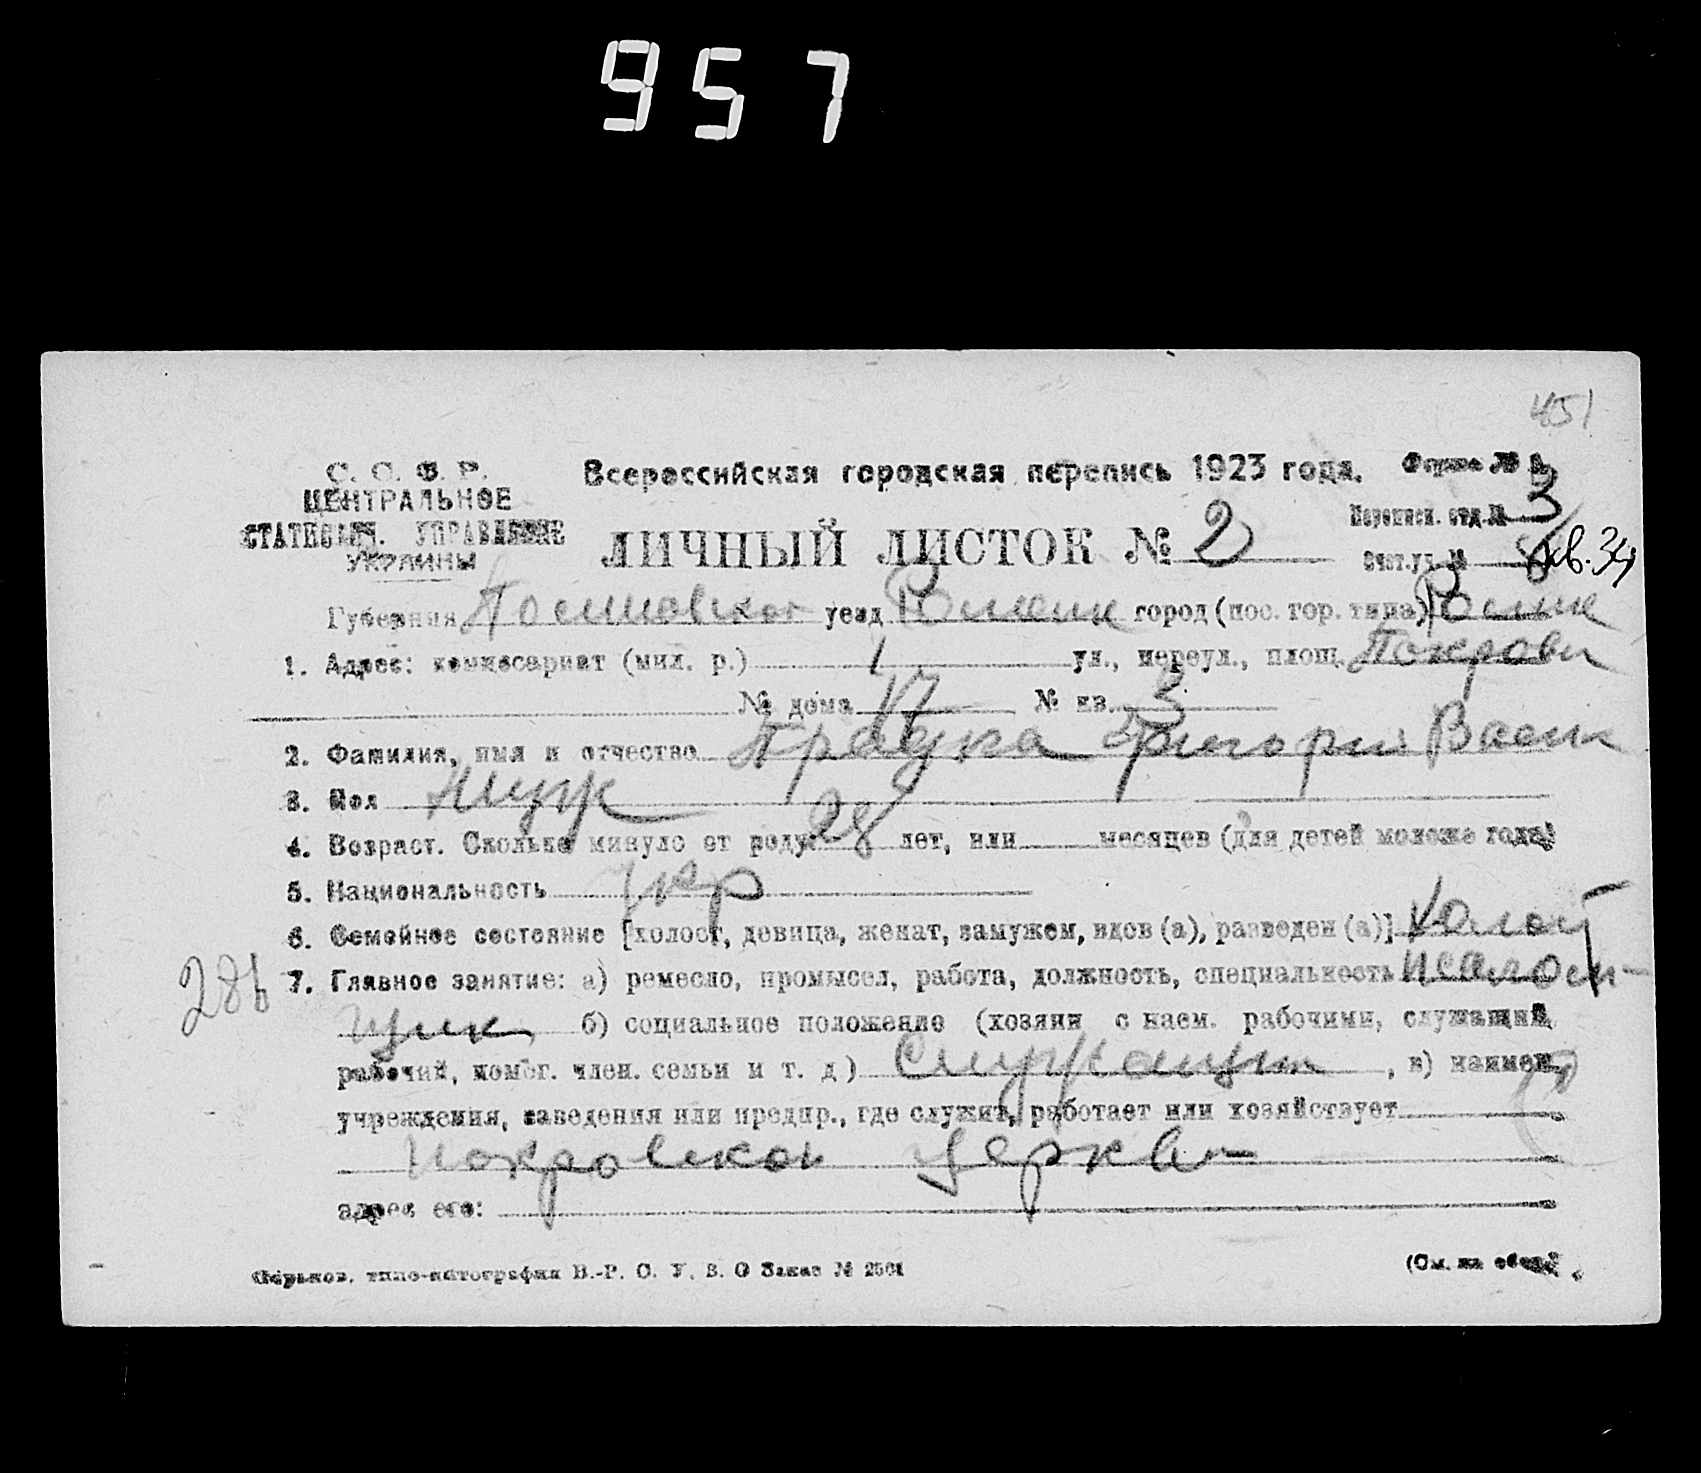 957
451
С. С. Ф. Р.
ЦЕНТРАЛЬНОЕ
СТАТИСТИЧ. УПРАВЛЕНИЕ
УКРАИНЫ
Всероссийская городская перепись 1923 года.
Форма №
Переписн. отд. № 3
ЛИЧНЫЙ ЛИСТОК № 2
Счет. уч. № кв. 34
Губерния уезд Ромен город (пос. гор. типа) Ромны
1. Адрес: комиссариат (мил. р.) 1 ул., переул., площ. Покровск
№ дома 17 № кв. 3
2. Фамилия, имя и отчество Григорий Васил
3. Пол Муж
4. Возраст. Сколько минуло от роду 28 лет, или месяцев (для детей моложе года)
5. Национальность Укр
6. Семейное состояние [холост, девица, женат, замужем, вдов (а), разведен (а)] Холост
286
7. Главное занятие: а) ремесло, промысел, работа, должность, специальность псалом-
щик б) социальное положение (хозяин с наем. рабочими, служащий,
рабочий, помог. член. семьи и т. д) Служащий, в) наимен.
учреждения, заведения или предпр., где служит, работает или хозяйствует
Покровской церкви
адрес его:
Харьков, типо-литография В.-Р. С. У. В. О Заказ №
(См. на обор.